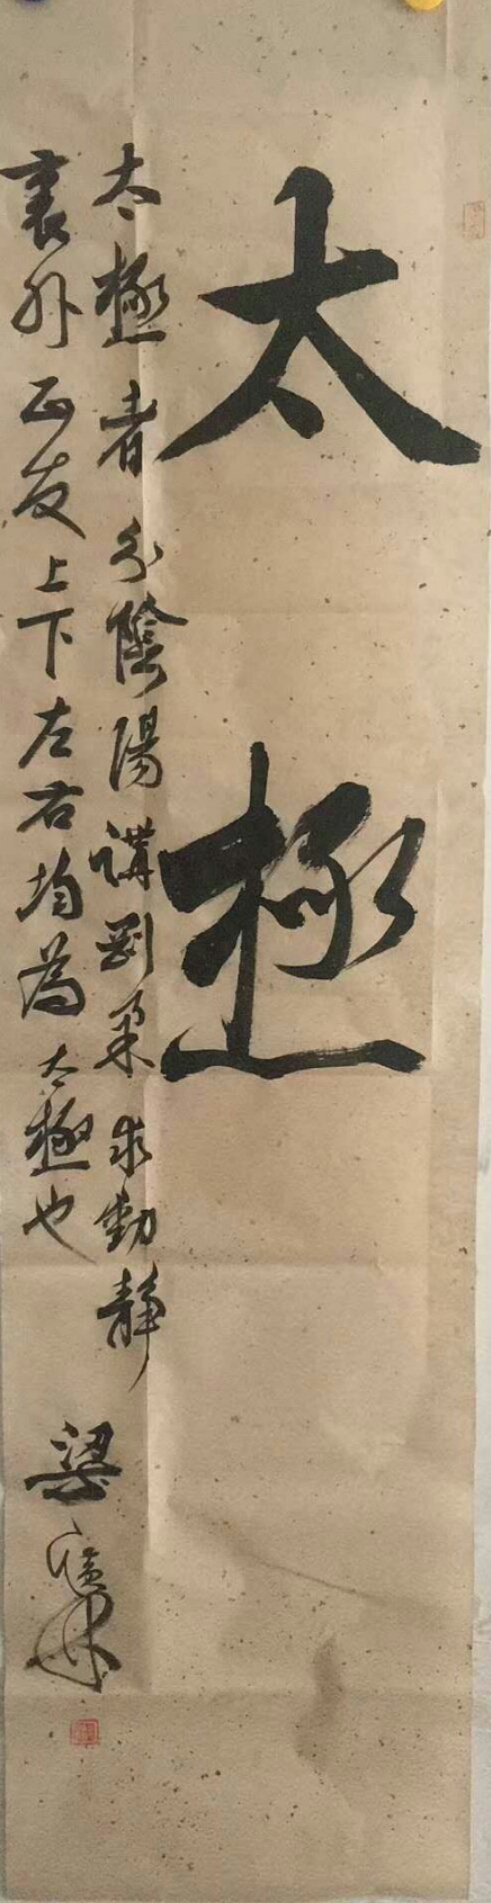 太極
太極者分陰陽講剛柔求動靜
裏外正反上下左右均為太極也
梁